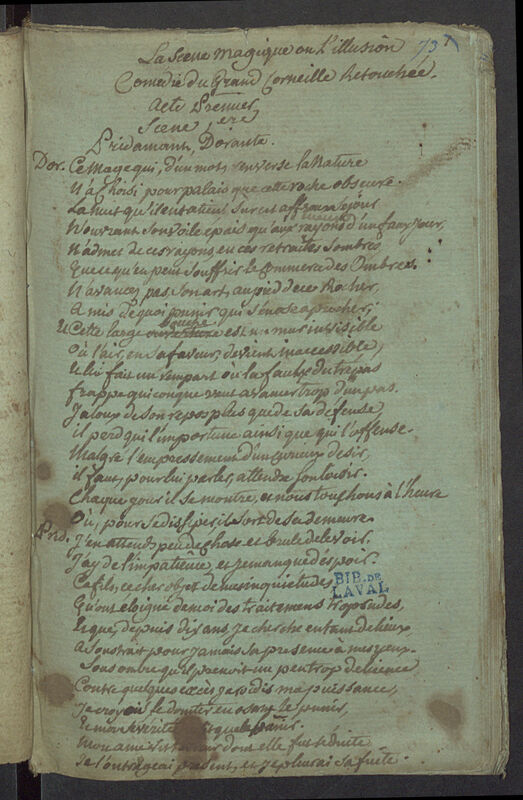 737
La Scene Magique ou L'illusion
Comedie du Grand Corneille Retouchée.
Acte Premier
Scene 1ere
Pridamant, Dorante.
Dor. Ce Mage qui, d'un mot, renverse la Nature
N'a choisi pour palais que cette roche obscure.
La nuit qu'il entretient sur cet affreux séjour
N'ouvrant son voile epais qu'aux rayons d'un faux jour,
N'admet de ces rayons, en ces retraites sombres
Que ce qu'en peut souffrir le commerce des Ombres.
N'avancez pas, son art, au pied de ce Rocher,
A mis de quoi punir qui s'en ose aprocher;
Et cette large bouche est un mur invisible
Où l'air, en sa faveur, devient inaccessible,
Et lui fait un rempart où
frappe quiconque veut avancer trop d'un pas.
Jaloux de son repos plus que de sa defense
il perd qui l'importune ainsi que qui l'offense.
Malgré l'empressement d'un curieux desir,
il faut, pour lui parler, attendre son loisir.
Chaque jour il se montre, et nous touchons à l'heure
Où, pour se dissiper il sort de sa demeure.
Prid. J'en attends peu de chose et brule de le voir.
J'ay de l'impatience, et je manque d'espoir.
Ce fils, ce cher objet de mes inquietudes
Qu'ont eloigné de moi des traitemens trop rudes,
Et que, depuis dix ans, je cherche en tant de lieux
A soustrait pour jamais sa presence à mes yeux.
Sous ombre qu'il prenoit un peu trop de licence
Contre quelques excès je roidis ma puissance,
Je croyois le domter en osant le punir,
Et ma severité
Mon ame vit l'erreur dont elle fut seduite
Je l'outrageai present, et je pleurai sa fuite.
BIB. DE
LAVAL